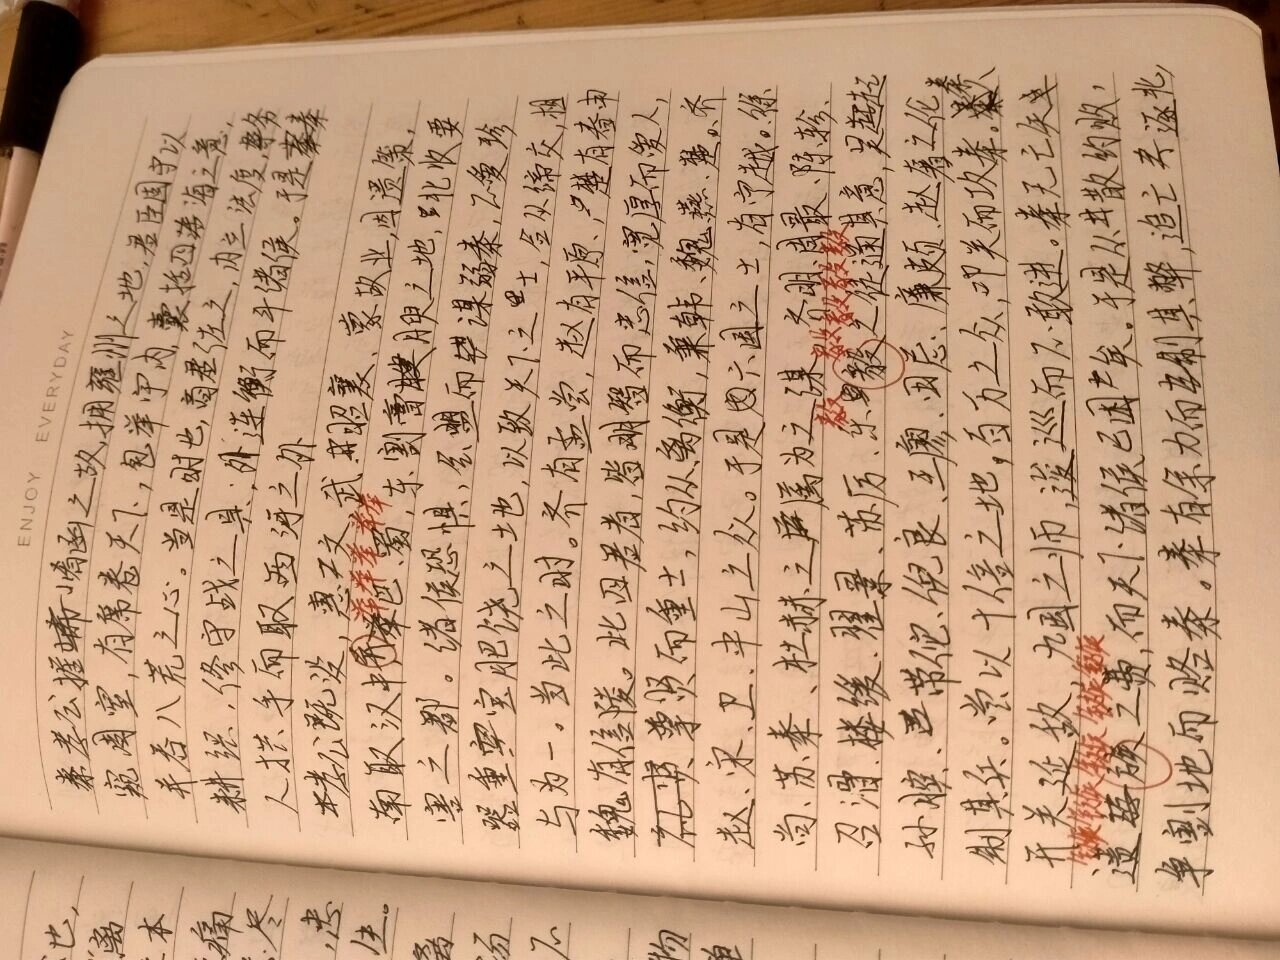 ENJOY EVERYDAY
秦孝公据崤函之故,拥雍州之地,君臣固守以
窥周室,有席卷天下,包举宇内,囊括四海之意,
并吞八荒之心。当是时也,商君佐之,内立法度,务
耕织,修守战之具,外连衡而斗诸侯。于是秦
人拱手而取西河之外
孝公既没,惠文、武、昭襄、蒙故业,因遗策,
南取汉中,举巴、蜀,东割膏腴之地,北收要
举举举举
害之郡。诸侯恐惧,会盟而谋弱秦,不爱珍
器重宝肥饶之地,以致天下之士,合从缔交,相
与为一。当此之时。齐有孟尝,赵有平原,楚有春申
魏有信陵。此四君者,皆明智而忠信,宽厚而爱人,
尊贤而重士,约从离衡,兼韩、魏、燕、楚、齐
赵、宋、卫、中山之众。于是六国之士,有宁越。徐
尚、苏秦、杜赫之属为之谋,齐明、周最、陈轸、
召滑、楼缓、翟景、苏厉、乐毅之徒通其意,吴起
毅毅毅毅毅
孙膑、带佗、倪良、王廖、田忌、廉颇、赵奢之伦
制其兵。尝以十倍之地,百万之众,叩关而攻秦。秦人
开关延敌,九国之师,逡巡而不敢进。秦无亡矢
镞镞镞镞镞
遗镞之费,而天下诸侯已困矣。于是从散约败,
争割地而赂秦。秦有余力而制其弊,追亡逐北,
也,
离
本
痛
尽
,忠
住。
不
物